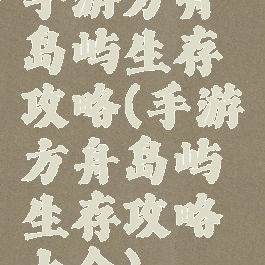 手游方舟
岛屿生存
攻略(手游
方舟岛屿
生存攻略
大全)